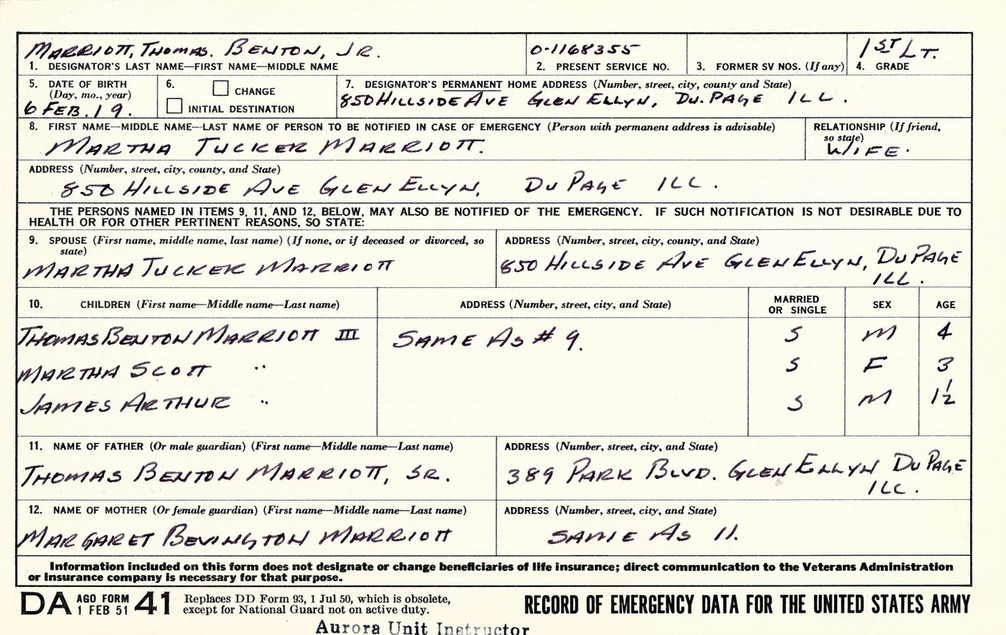 MARRIOTT, THOMAS. BENTON, JR. 0-1168355 1ST LT.
1. DESIGNATOR'S LAST NAME—FIRST NAME—MIDDLE NAME 2. PRESENT SERVICE NO. 3. FORMER SV NOS. (If any) 4. GRADE
5. DATE OF BIRTH (Day, mo., year)
6 FEB. 19.
6. CHANGE
INITIAL DESTINATION
7. DESIGNATOR'S PERMANENT HOME ADDRESS (Number, street, city, county and State)
850 HILLSIDE AVE GLEN ELLYN, DU. PAGE ILL.
8. FIRST NAME—MIDDLE NAME—LAST NAME OF PERSON TO BE NOTIFIED IN CASE OF EMERGENCY (Person with permanent address is advisable)
MARTHA TUCKER MARRIOTT.
RELATIONSHIP (If friend, so state)
WIFE.
ADDRESS (Number, street, city, county, and State)
850 HILLSIDE AVE GLEN ELLYN, DU PAGE ILL.
THE PERSONS NAMED IN ITEMS 9, 11, AND 12, BELOW, MAY ALSO BE NOTIFIED OF THE EMERGENCY. IF SUCH NOTIFICATION IS NOT DESIRABLE DUE TO
HEALTH OR FOR OTHER PERTINENT REASONS, SO STATE:
9. SPOUSE (First name, middle name, last name) (If none, or if deceased or divorced, so
state)
MARTHA TUCKER MARRIOTT
ADDRESS (Number, street, city, county, and State)
850 HILLSIDE AVE GLEN ELLYN, DU PAGE
ILL.
10. CHILDREN (First name—Middle name—Last name) ADDRESS (Number, street, city, and State) MARRIED OR SINGLE SEX AGE
THOMAS BENTON MARRIOTT III SAME AS # 9. S M 4
MARTHA SCOTT " S F 3
JAMES ARTHUR " S M 1½
11. NAME OF FATHER (Or male guardian) (First name—Middle name—Last name)
THOMAS BENTON MARRIOTT, SR.
ADDRESS (Number, street, city, and State)
389 PARK BLVD. GLEN ELLYN DU PAGE
ILL.
12. NAME OF MOTHER (Or female guardian) (First name—Middle name—Last name)
MARGARET BEVINGTON MARRIOTT
ADDRESS (Number, street, city, and State)
SAME AS 11.
Information included on this form does not designate or change beneficiaries of life insurance; direct communication to the Veterans Administration
or Insurance company is necessary for that purpose.
DA AGO FORM 1 FEB 51 41
Replaces DD Form 93, 1 Jul 50, which is obsolete,
except for National Guard not on active duty.
RECORD OF EMERGENCY DATA FOR THE UNITED STATES ARMY
Aurora Unit Instructor